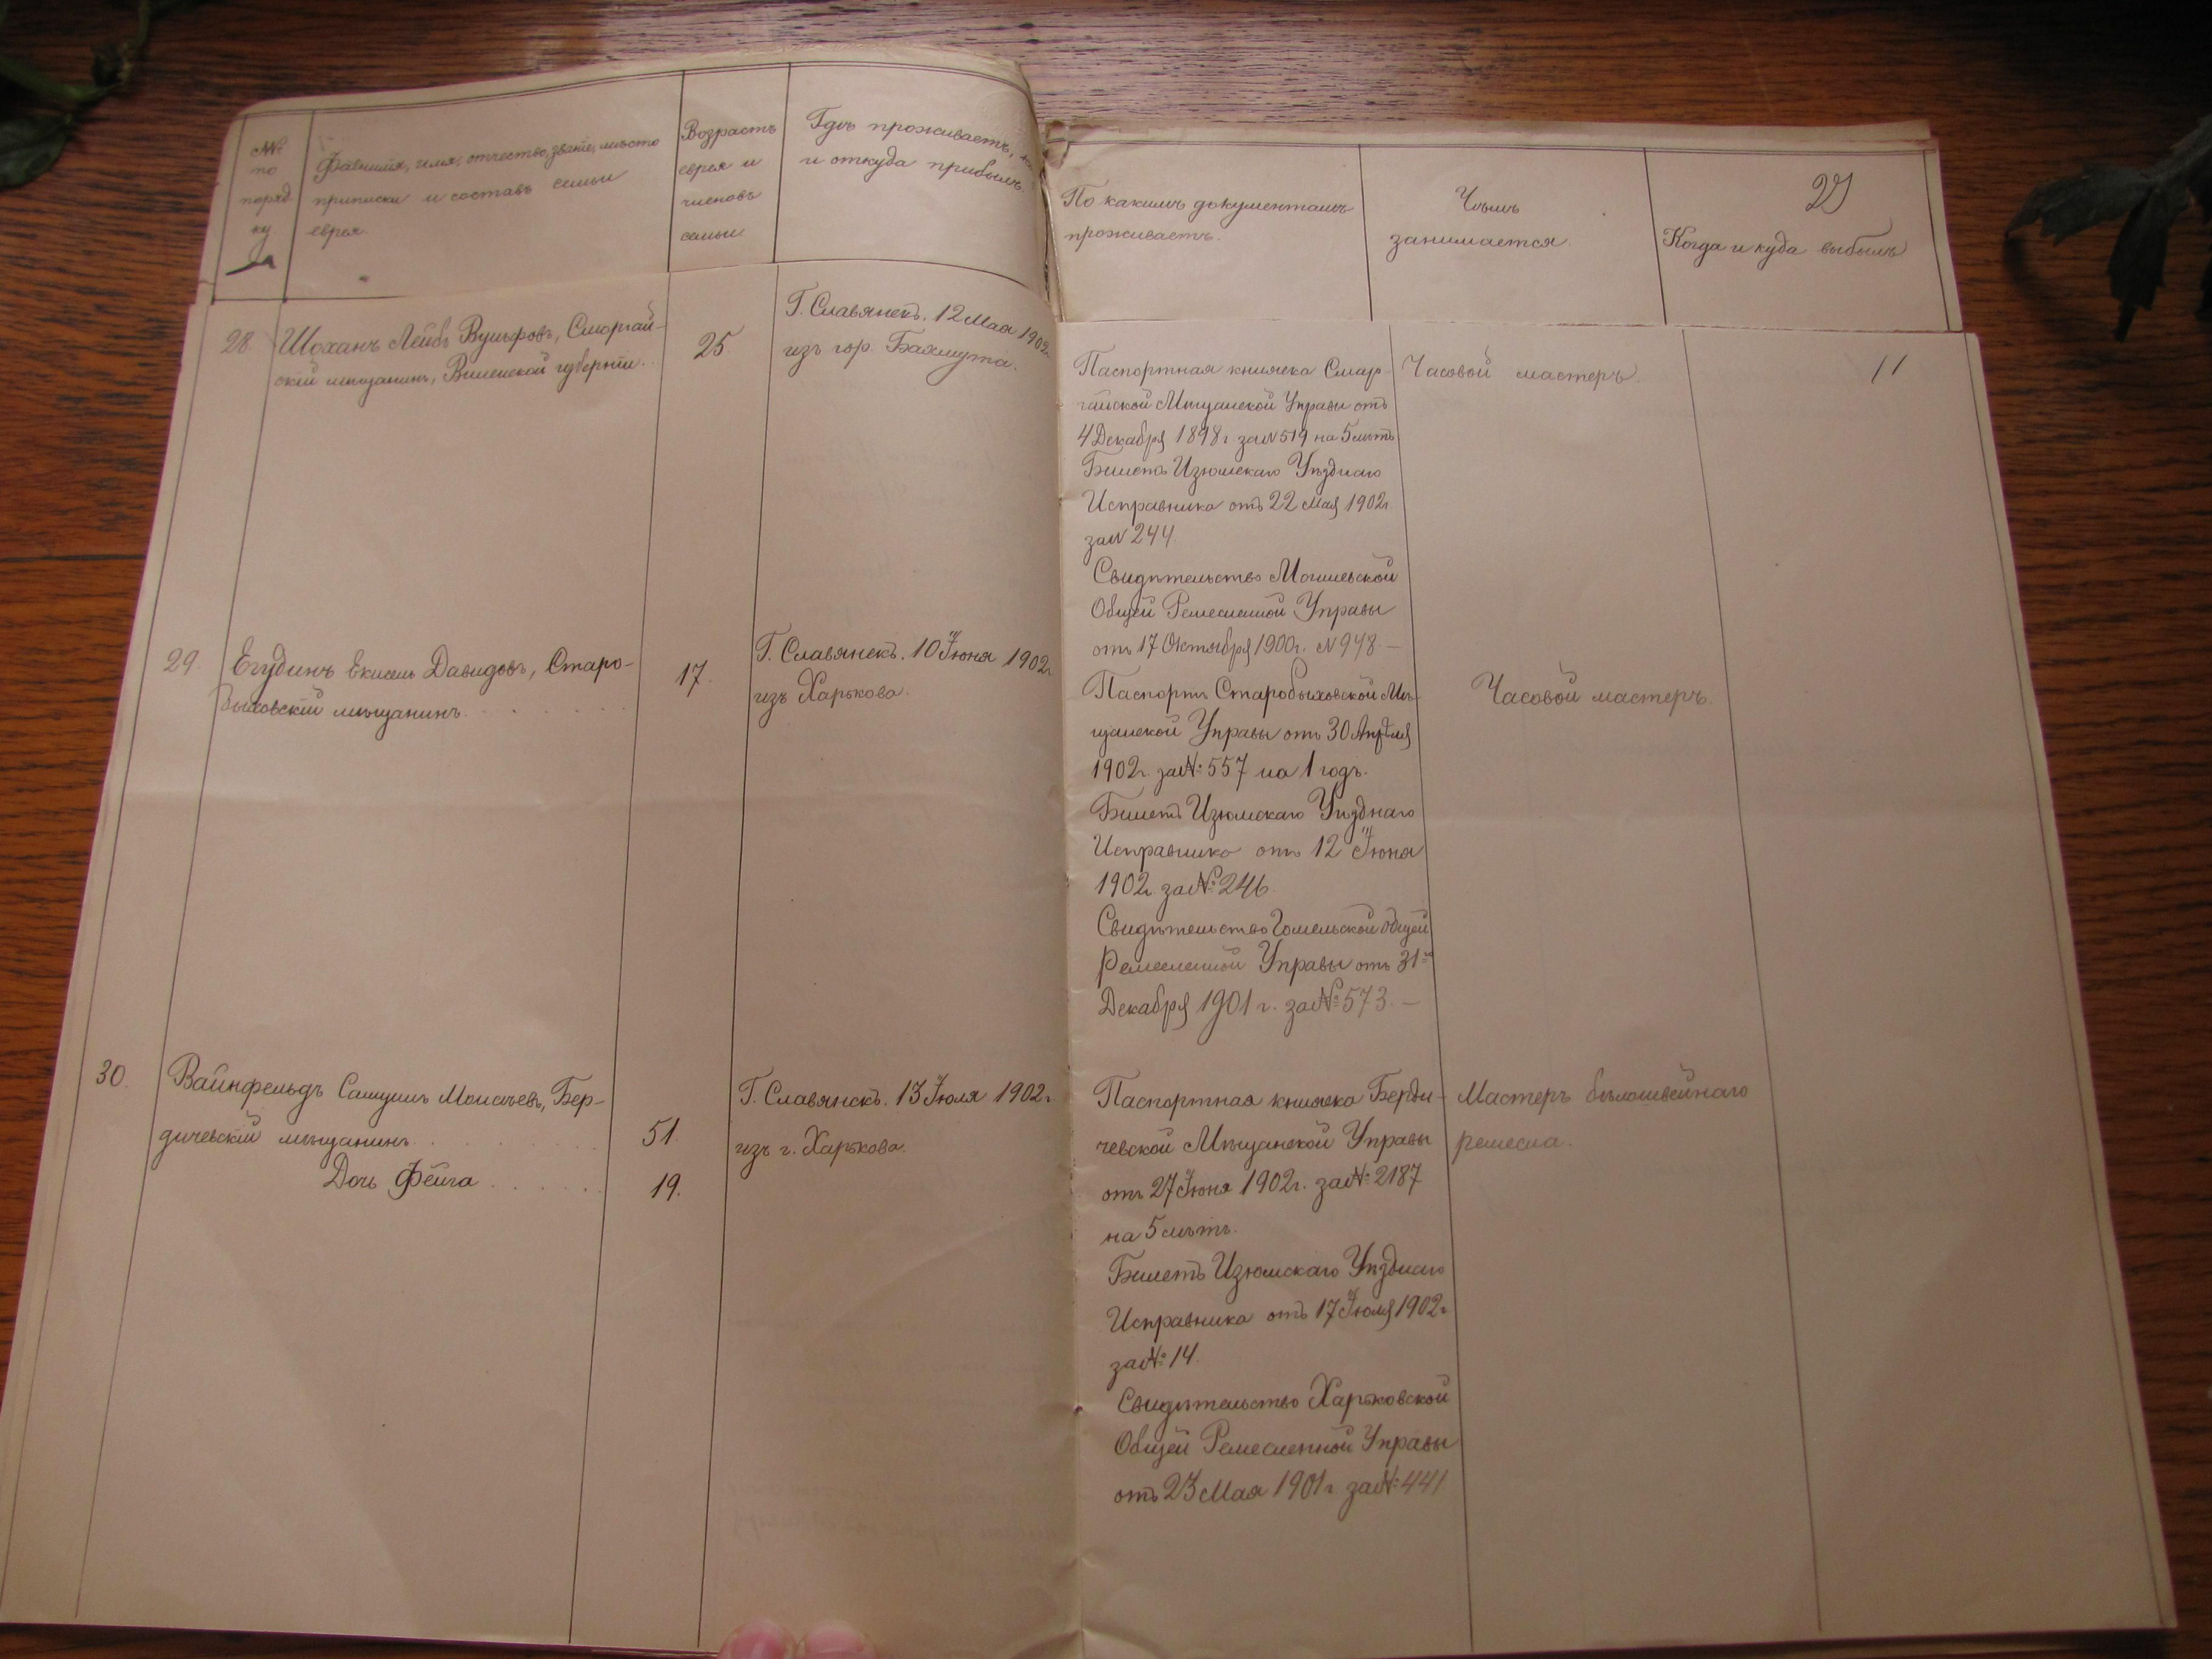 №№
по
поряд
ку
Фамилія, имя, отчество, званіе, мѣсто
приписки и составъ семьи
еврея.
Возрастъ
еврея и
членовъ
семьи
Гдѣ проживаетъ,
и откуда прибылъ.
По какимъ документамъ
проживаетъ.
Чѣмъ
занимается
Когда и куда выбылъ
28. Шоханъ Лейбъ Вульфовъ, Сморгай-
скій мѣщанинъ, Виленской губерніи.
25.
Г. Славянскъ. 12 Мая 1902г.
изъ гор. Бахмута.
Паспортная книжка Смор-
гайской Мѣщанской Управы отъ
4 Декабря 1898 г за № 519 на 5 лѣтъ
Билетъ Изюмскаго Уѣзднаго
Исправника отъ 22 Мая 1902г
за № 244.
Свидѣтельство Могилевской
Общей Ремесленной Управы
отъ 17 Октября 1900г. № 948. —
Часовой мастеръ.
11
29. Егудинъ Екисель Давидовъ, Старо-
быховскій мѣщанинъ . . . . . .
17.
Г. Славянскъ. 10 Іюня 1902г
изъ Харькова.
Паспортъ Старобыховской Мѣ-
щанской Управы отъ 30 Апрѣля
1902г. за № 557 на 1 годъ.
Билетъ Изюмскаго Уѣзднаго
Исправника отъ 12 Іюня
1902г за № 246.
Свидѣтельство Гомельской Общей
Ремесленной Управы отъ 31го
Декабря 1901 г. за № 573. —
Часовой мастеръ.
30. Вайнфельдъ Самуилъ Моисѣевъ, Бер-
дичевскій мѣщанинъ . . . . . .
Дочь Фейга . . . . . .
51.
19.
Г. Славянскъ. 13 Іюля 1902г.
изъ г. Харькова.
Паспортная книжка Берди-
чевской Мѣщанской Управы
отъ 27 Іюня 1902г. за № 2187
на 5 лѣтъ.
Билетъ Изюмскаго Уѣзднаго
Исправника отъ 17 Іюля 1902г
за № 14.
Свидѣтельство Харьковской
Общей Ремесленной Управы
отъ 23 Мая 1901 г. за № 441
Мастеръ бѣлошвейнаго
ремесла.